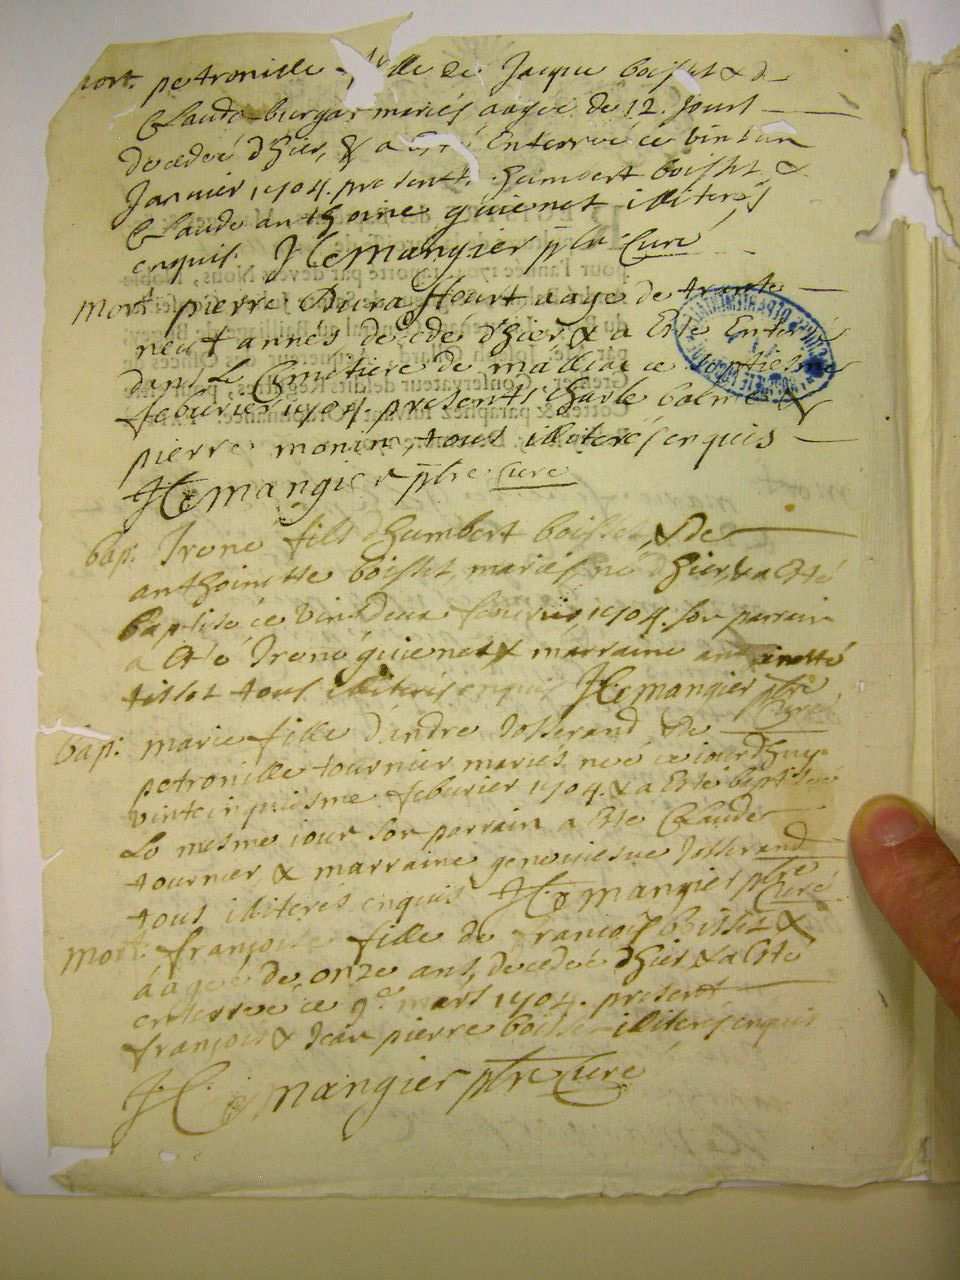 mort. petronille fille de Jacque boisset & de
Clauda burgar mariés aagée de 12. Jours
decedeé d'hier, & a esté Enterreé ce vint un
Janvier 1704. present humbert boisset &
Claude anthoine guienet illiterés
enquis. J C Mangier ptre Curé
Mort. pierre aagé de trante
neuf années decedé d'hier & a Este Enterré
dans Le Cimetiere de ce
feburier 1704. presents Charle &
pierre monin, tous illiterés enquis
J C mangier ptre Cure
bap. Irené fils d'humbert boisset, & de
anthoinette boisset, mariés, né d'hier, & a Esté
baptisé ce vint deux feburier, 1704. son parrain
a Esté Irené guienet & marraine anthoinette
tissot tous illiterés enquis J C mangier ptre
Curé
bap. marie fille d'andre Josserand & de
petronille tournier mariés, neé ce iourdhuy
vintcinquiesme feburier 1704. & a Esté baptiseé
Le mesme iour son parrain a Este Claude
tournier, & marraine geneviesve Josserand
tous illiterés enquis J C mangier ptre
Curé
Mort. françoise fille de françois boisset &
áageé de onze ans, decedeé d'hier & a Este
enterreé ce 9e mars 1704. present
françois & Jean pierre boisset illiterés enquis
J C mangier ptre Cure